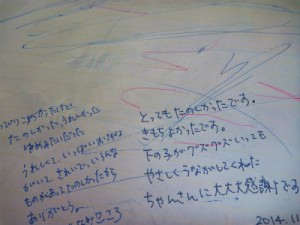 たのしかった、うれしかった
ゆめみたいだった
うれしくて、いっぱい
がいて、きれいで、いろんな
ものがあってたのしかったから
ありがとう。
こころ
とってもたのしかったです。
きもちよかったです。
下の子がグズグズいっても
やさしくうながしてくれた
ちゃんさんに大大大感謝です
2014.11